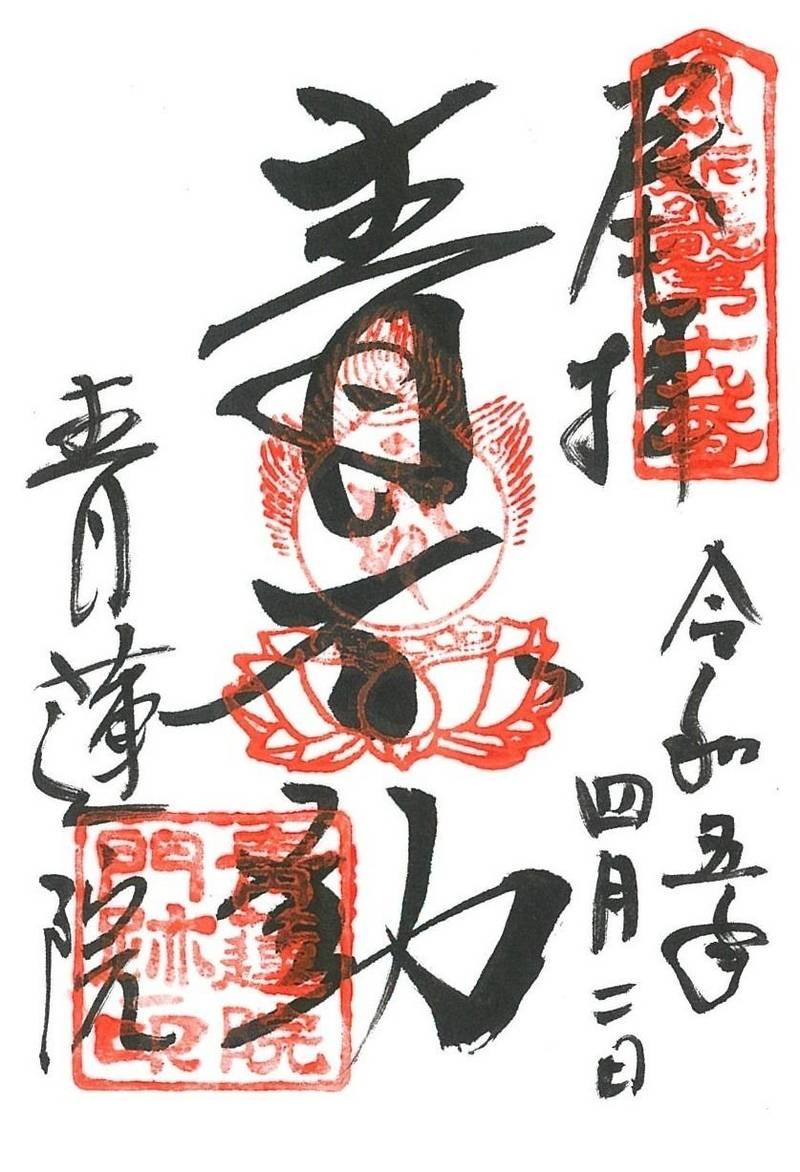 奉拝
近畿第十九番
令和五年
四月二日
青不動
青蓮院
青蓮院
門跡印